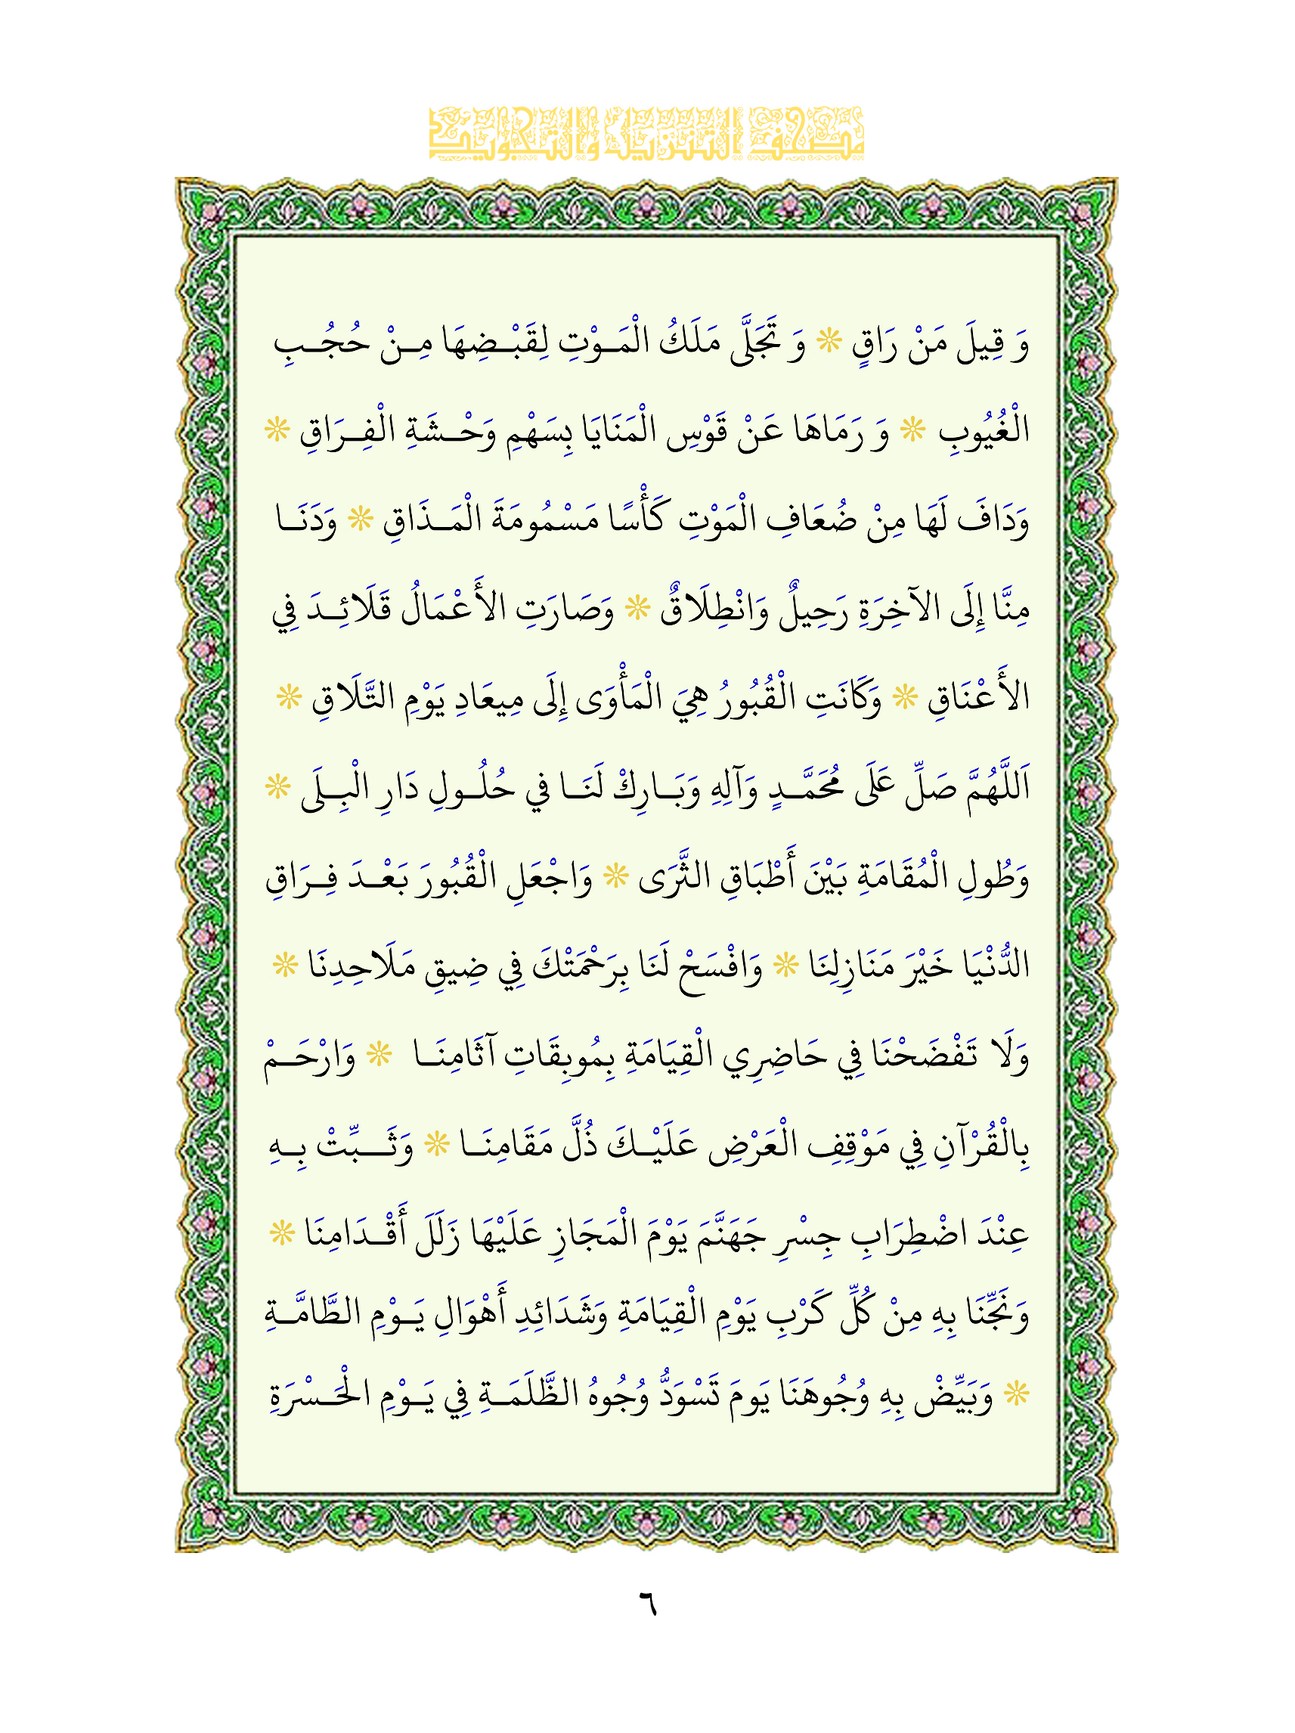 وَ قِيلَ مَنْ رَاقٍ ❊ وَ تَجَلَّى مَلَكُ الْمَـوْتِ لِقَبْـضِهَا مِـنْ حُجُـبِ
الْغُيُوبِ ❊ وَ رَمَاهَا عَنْ قَوْسِ الْمَنَايَا بِسَهْمِ وَحْـشَةِ الْفِـرَاقِ ❊
وَدَافَ لَهَا مِنْ ضُعَافِ الْمَوْتِ كَأْسًا مَسْمُومَةَ الْمَـذَاقِ ❊ وَدَنَـا
مِنَّا إِلَى الآخِرَةِ رَحِيلٌ وَانْطِلَاقٌ ❊ وَصَارَتِ الأَعْمَالُ قَلَائِـدَ فِي
الأَعْنَاقِ ❊ وَكَانَتِ الْقُبُورُ هِيَ الْمَأْوَى إِلَى مِيعَادِ يَوْمِ التَّلَاقِ ❊
اَللَّهُمَّ صَلِّ عَلَى مُحَمَّـدٍ وَآلِهِ وَبَـارِكْ لَنَـا في حُلُـولِ دَارِ الْبِـلَى ❊
وَطُولِ الْمُقَامَةِ بَيْنَ أَطْبَاقِ الثَّرَى ❊ وَاجْعَلِ الْقُبُورَ بَعْـدَ فِـرَاقِ
الدُّنْيَا خَيْرَ مَنَازِلِنَا ❊ وَافْسَحْ لَنَا بِرَحْمَتْكَ فِي ضِيقِ مَلَاحِدِنَا ❊
وَلَا تَفْضَحْنَا فِي حَاضِرِي الْقِيَامَةِ بِمُوبِقَاتِ آثَامِنَـا ❊ وَارْحَـمْ
بِالْقُرْآنِ فِي مَوْقِفِ الْعَرْضِ عَلَيْـكَ ذُلَّ مَقَامِنَـا ❊ وَثَـبِّتْ بِـهِ
عِنْدَ اضْطِرَابِ جِسْرِ جَهَنَّمَ يَوْمَ الْمَجَازِ عَلَيْهَا زَلَلَ أَقْـدَامِنَا ❊
وَنَجِّنَا بِهِ مِنْ كُلِّ كَرْبِ يَوْمِ الْقِيَامَةِ وَشَدَائِدِ أَهْوَالِ يَـوْمِ الطَّامَّـةِ
❊ وَبَيِّضْ بِهِ وُجُوهَنَا يَومَ تَسْوَدُّ وُجُوهُ الظَّلَمَـةِ فِي يَـوْمِ الْحَـسْرَةِ
٦